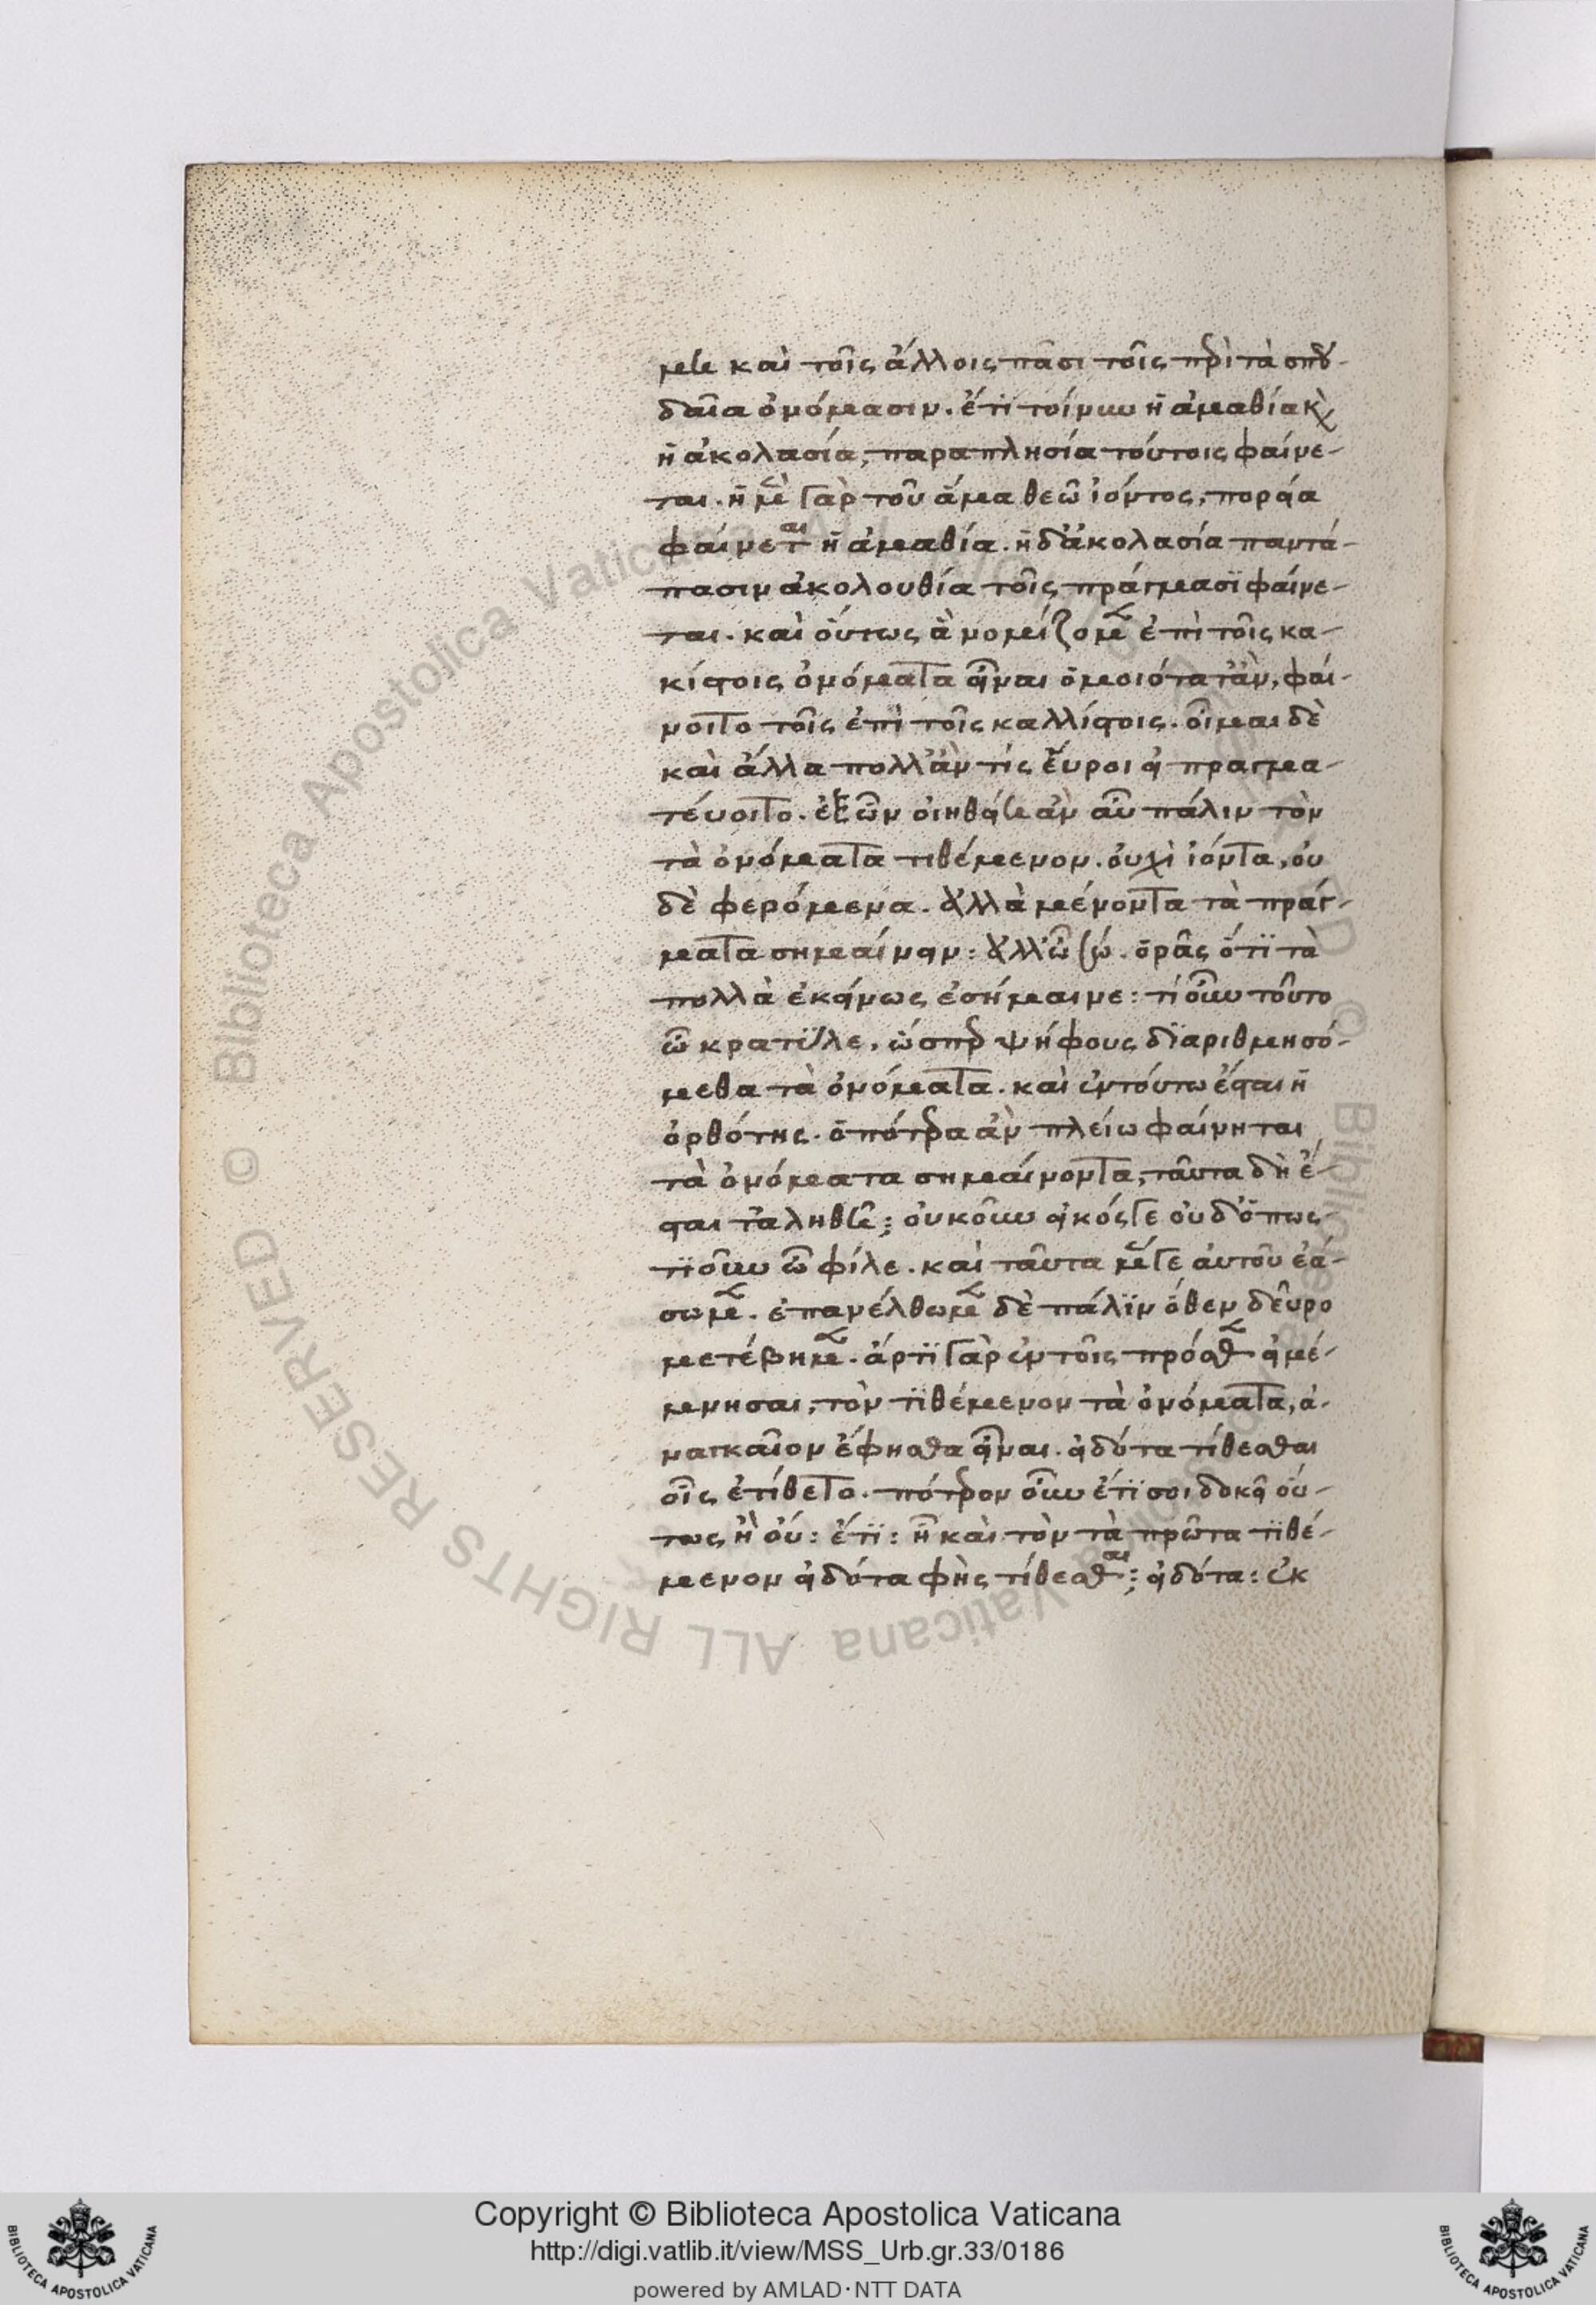 μει καὶ τοῖς ἄλλοις πᾶσι τοῖς περὶ τὰ σπου-
δαῖα ὀνόμασιν. ἔτι τοίνυν ἡ ἀμαθία καὶ
ἡ ἀκολασία, παραπλησία τούτοις φαίνε-
ται. ἡ μὲν γὰρ τοῦ ἅμα θεῷ ἰόντος, πορεία
φαίνεται ἡ ἀμαθία. ἡ δ' ἀκολασία παντά-
πασιν ἀκολουθία τοῖς πράγμασι φαίνε-
ται. καὶ οὕτως ἃ νομίζομεν ἐπὶ τοῖς κα-
κίστοις ὀνόματα εἶναι ὁμοιότατ' ἂν, φαί-
νοιτο τοῖς ἐπὶ τοῖς καλλίστοις. οἶμαι δὲ
καὶ ἄλλα πόλλ' ἄν τις εὕροι εἰ πραγμα-
τεύοιτο. ἐξ ὧν οἰηθείη ἂν αὖ πάλιν τὸν
τὰ ὀνόματα τιθέμενον. οὐχὶ ἰόντα, οὐ
δὲ φερόμενα. ἀλλὰ μένοντα τὰ πράγ-
ματα σημαίνειν: ἀλλ' ὦ σώ. ὁρᾷς ὅτι τὰ
πολλὰ ἐκείνως ἐσήμαινε: τί οὖν τοῦτο
ὦ κρατύλε, ὥσπερ ψήφους διαριθμησό-
μεθα τὰ ὀνόματα. καὶ ἐν τούτω ἔσται ἡ
ὀρθότης. ὁπότερα ἂν πλείω φαίνηται
τὰ ὀνόματα σημαίνοντα, ταῦτα δὴ ἔ-
σται τἀληθῆ; οὐκοῦν εἰκός γε οὐδ' ὅπως
τι οὖν ὦ φίλε. καὶ ταῦτα μέν γε αὐτοῦ ἐά-
σωμεν. ἐπανέλθωμεν δὲ πάλιν ὅθεν δεῦρο
μετέβημεν. ἄρτι γὰρ ἐν τοῖς πρόσθεν εἰ μέ-
μνησαι, τὸν τιθέμενον τὰ ὀνόματα, ἀ-
ναγκαῖον ἔφησθα εἶναι. εἰδότα τίθεσθαι
οἷς ἐτίθετο. πότερον οὖν ἔτι σοι δοκεῖ οὕ-
τως ἢ οὔ: ἔτι: ἦ καὶ τὸν τὰ πρῶτα τιθέ-
μενον εἰδότα φῂς τίθεσθαι; εἰδότα: ἐκ
Copyright © Biblioteca Apostolica Vaticana
http://digi.vatlib.it/view/MSS_Urb.gr.33/0186
powered by AMLAD·NTT DATA